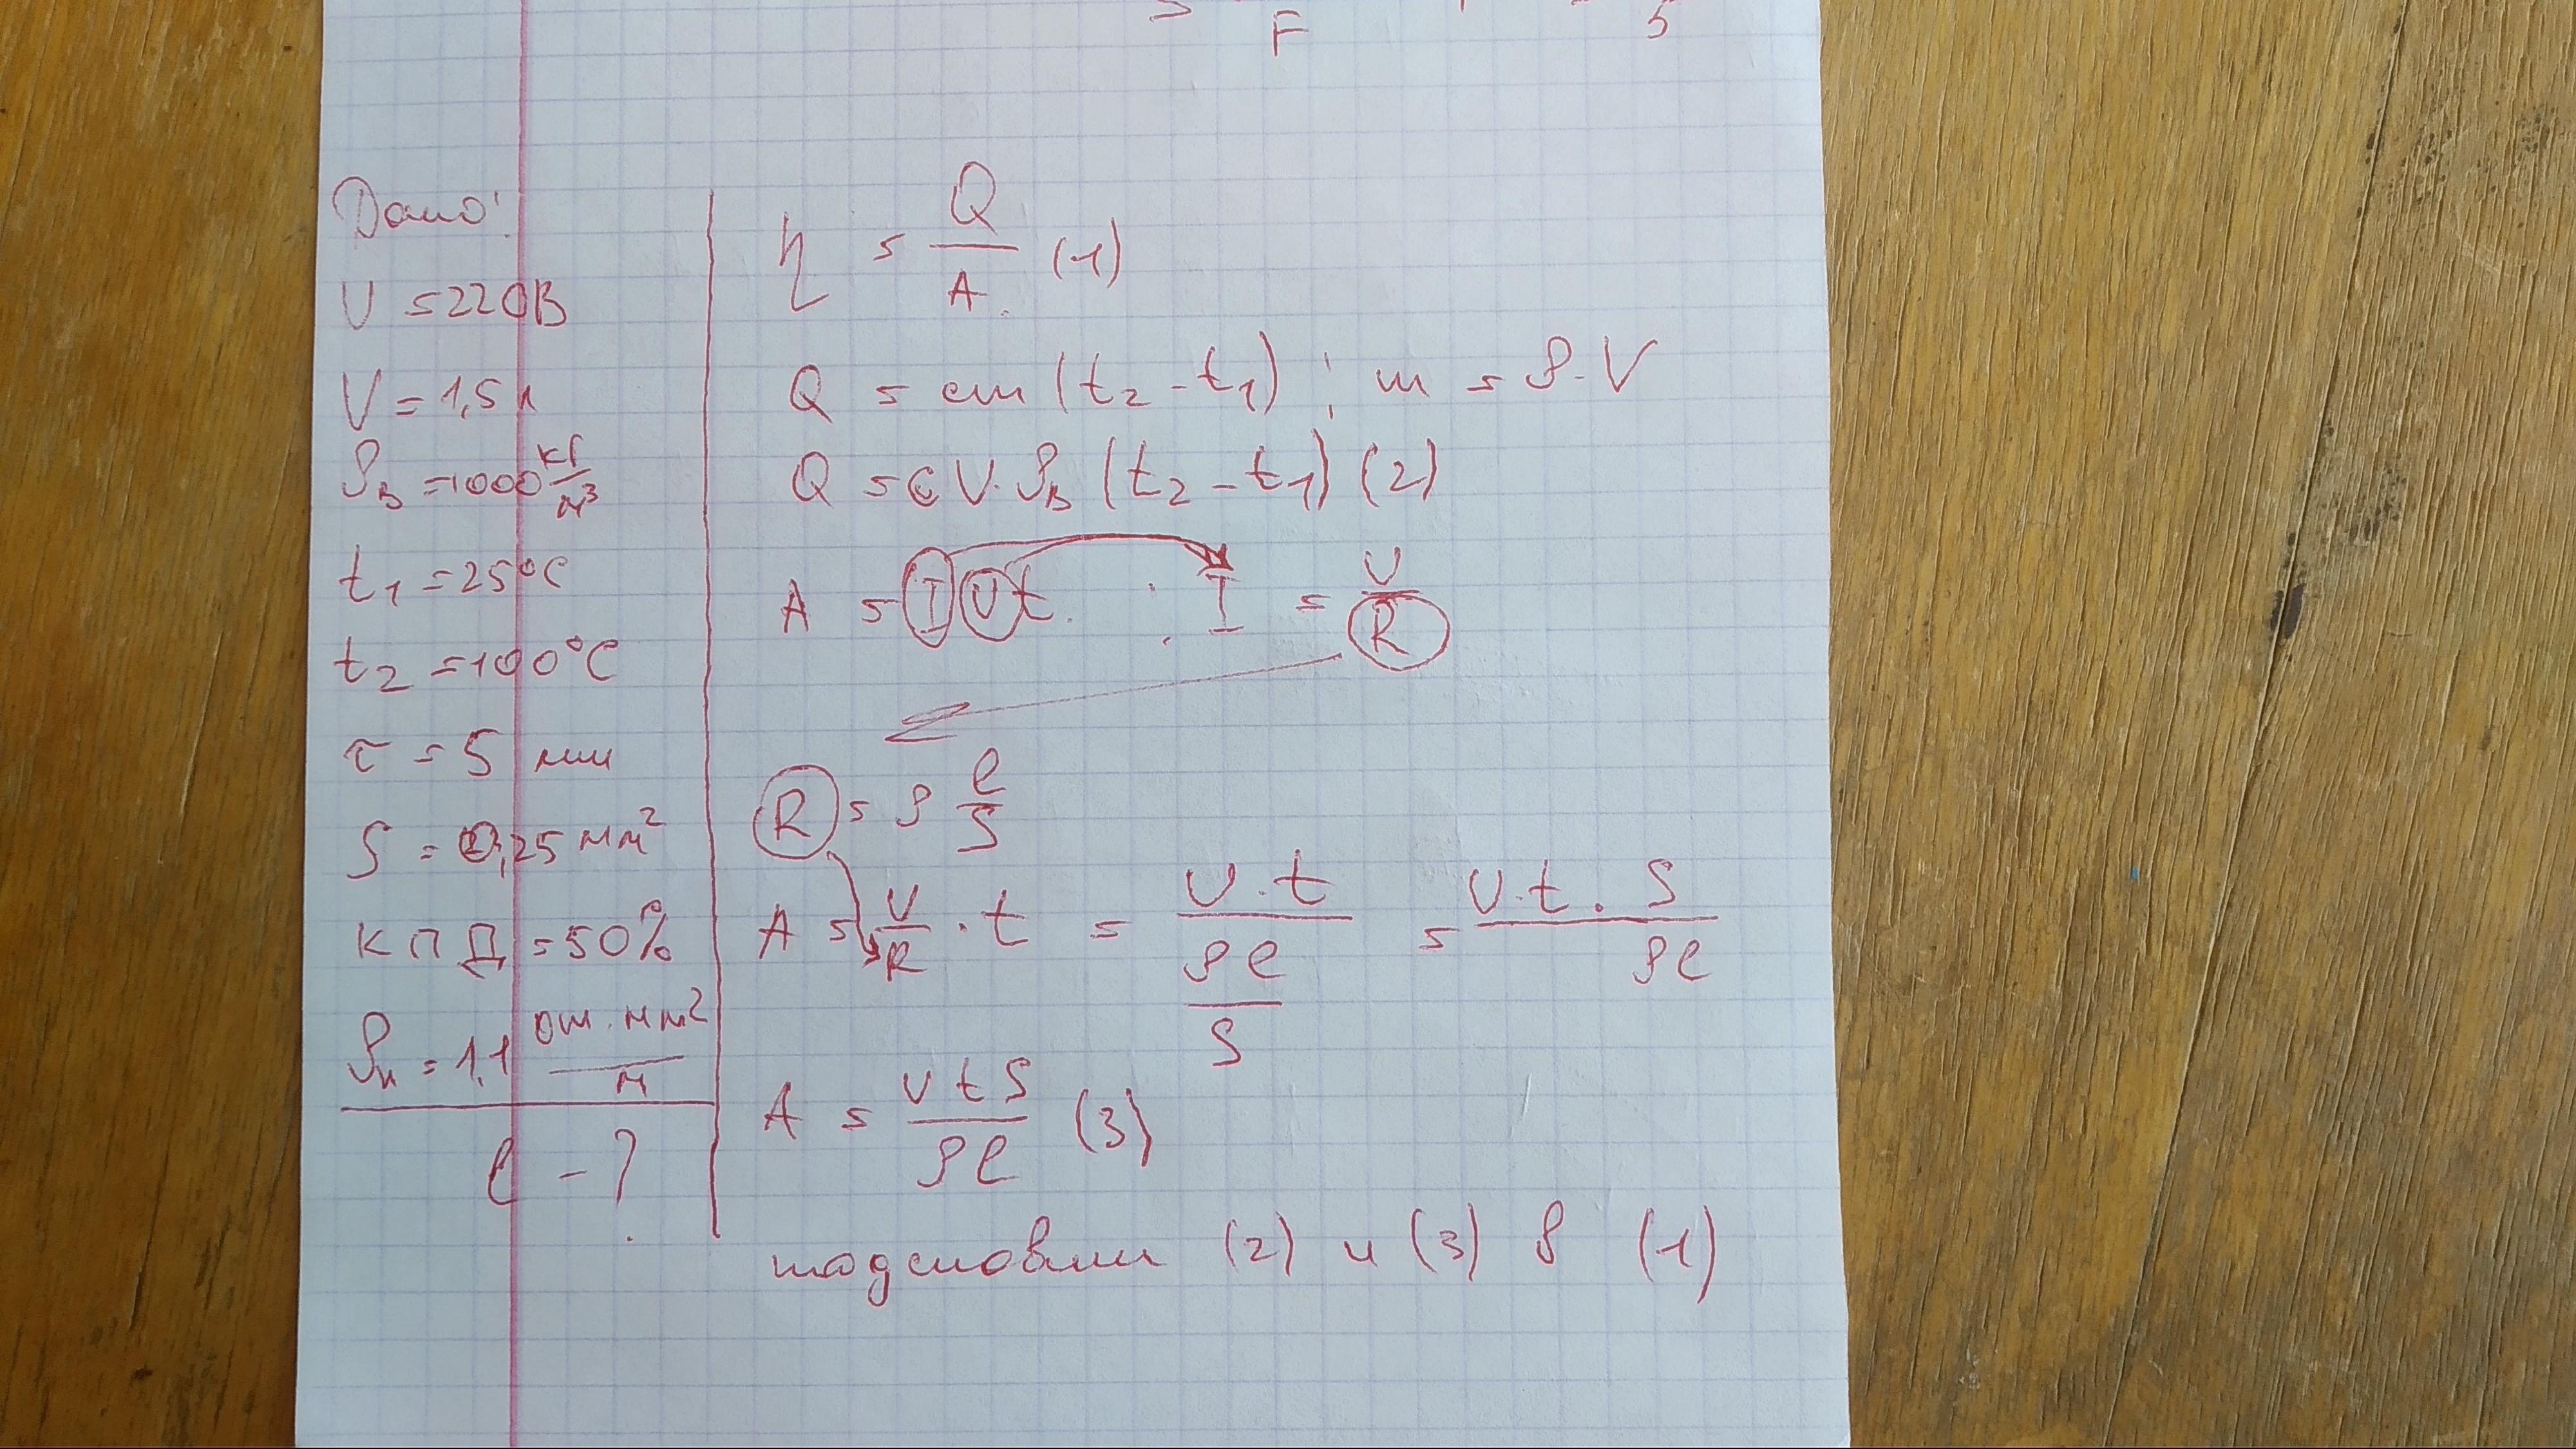 F 5
Дано:
U = 220В
V = 1,5 л
ρв = 1000 кг/м³
t₁ = 25°C
t₂ = 100°C
τ = 5 мин
S = 0,25 мм²
КПД = 50%
ρн = 1,1 ом·мм²/м
l - ?
η = Q/A (1)
Q = cm(t₂ - t₁); m = ρ·V
Q = cV·ρв(t₂ - t₁) (2)
A = IUt ; I = U/R
R = ρ l/S
A = U/R · t = U·t/(ρl/S) = U·t·S/ρl
A = UtS/ρl (3)
подставим (2) и (3) в (1)